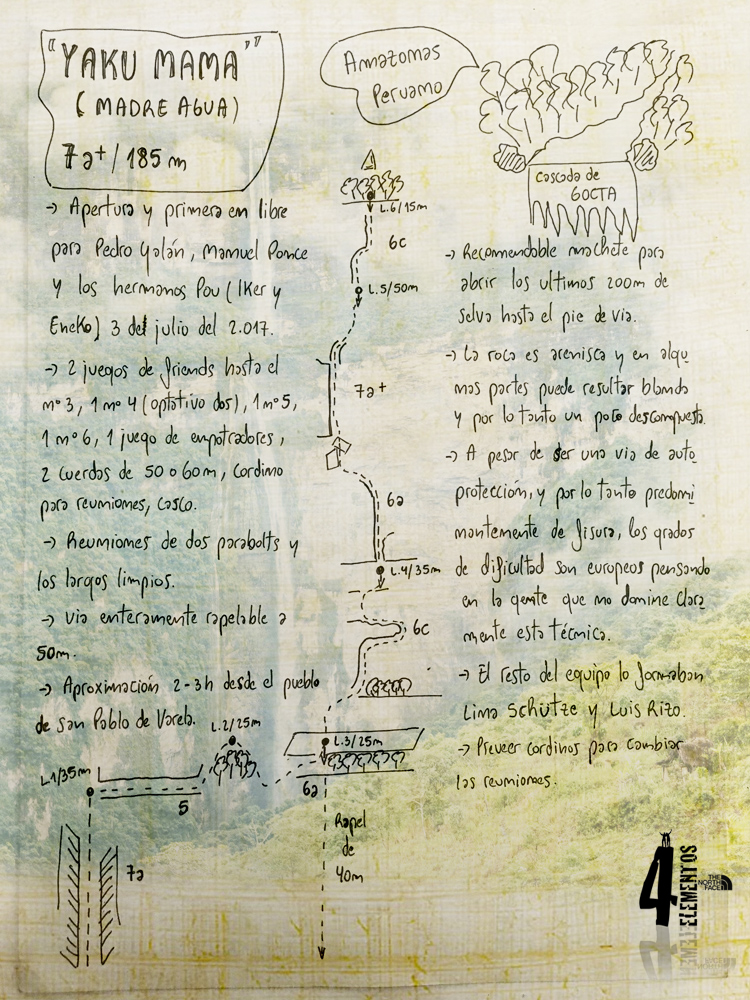 "YAKU MAMA"
( MADRE AGUA)
7a+ / 185 m
Amazonas
Peruano
Cascada de
GOCTA
-> Apertura y primera en libre
para Pedro Galán, Manuel Ponce
y los hermanos Pou (Iker y
Eneko) 3 del julio del 2.017.
-> 2 juegos de friends hasta el
nº 3, 1 nº 4 (optativo dos), 1 nº 5,
1 nº 6, 1 juego de empotradores,
2 cuerdas de 50 o 60m, cordino
para reuniones, casco.
-> Reuniones de dos parabolts y
los largos limpios.
-> via enteramente rapelable a
50m.
-> Aproximación 2-3h desde el pueblo
de san Pablo de Varela.
L.6/15m
6c
L.5/50m
7a+
6a
L.4/35m
6c
L.3/25m
6a
L.2/25m
5
L1/35m
7a
Rapel
de
40m
-> Recomendable machete para
abrir los ultimos 200m de
selva hasta el pie de via.
-> La roca es arenisca y en algu
nas partes puede resultar blanda
y por lo tanto un poco descompuesta.
-> A pesar de ser una via de auto
protección, y por lo tanto predomi
nantemente de fisura, los grados
de dificultad son europeos pensando
en la gente que no domine clara
mente esta técnica.
-> El resto del equipo lo formaban
Lina Schütze y Luis Rizo.
-> Preveer cordinos para cambiar
las reuniones.
4 ELEMENTOS
THE
NORTH
FACE